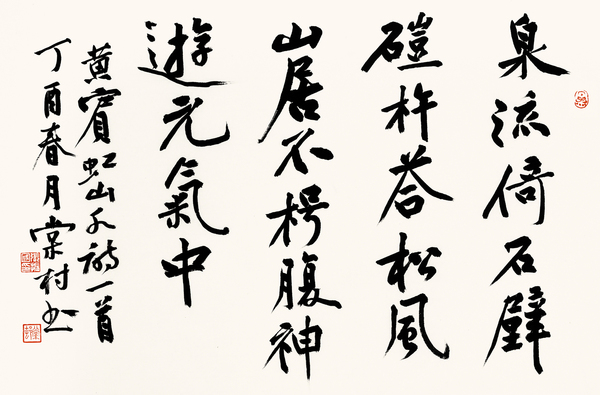 泉流倚石壁
磑杵荅松風
山居不枵腹神
遊元氣中
黄賓虹山水詩一首
丁酉春月棠村书